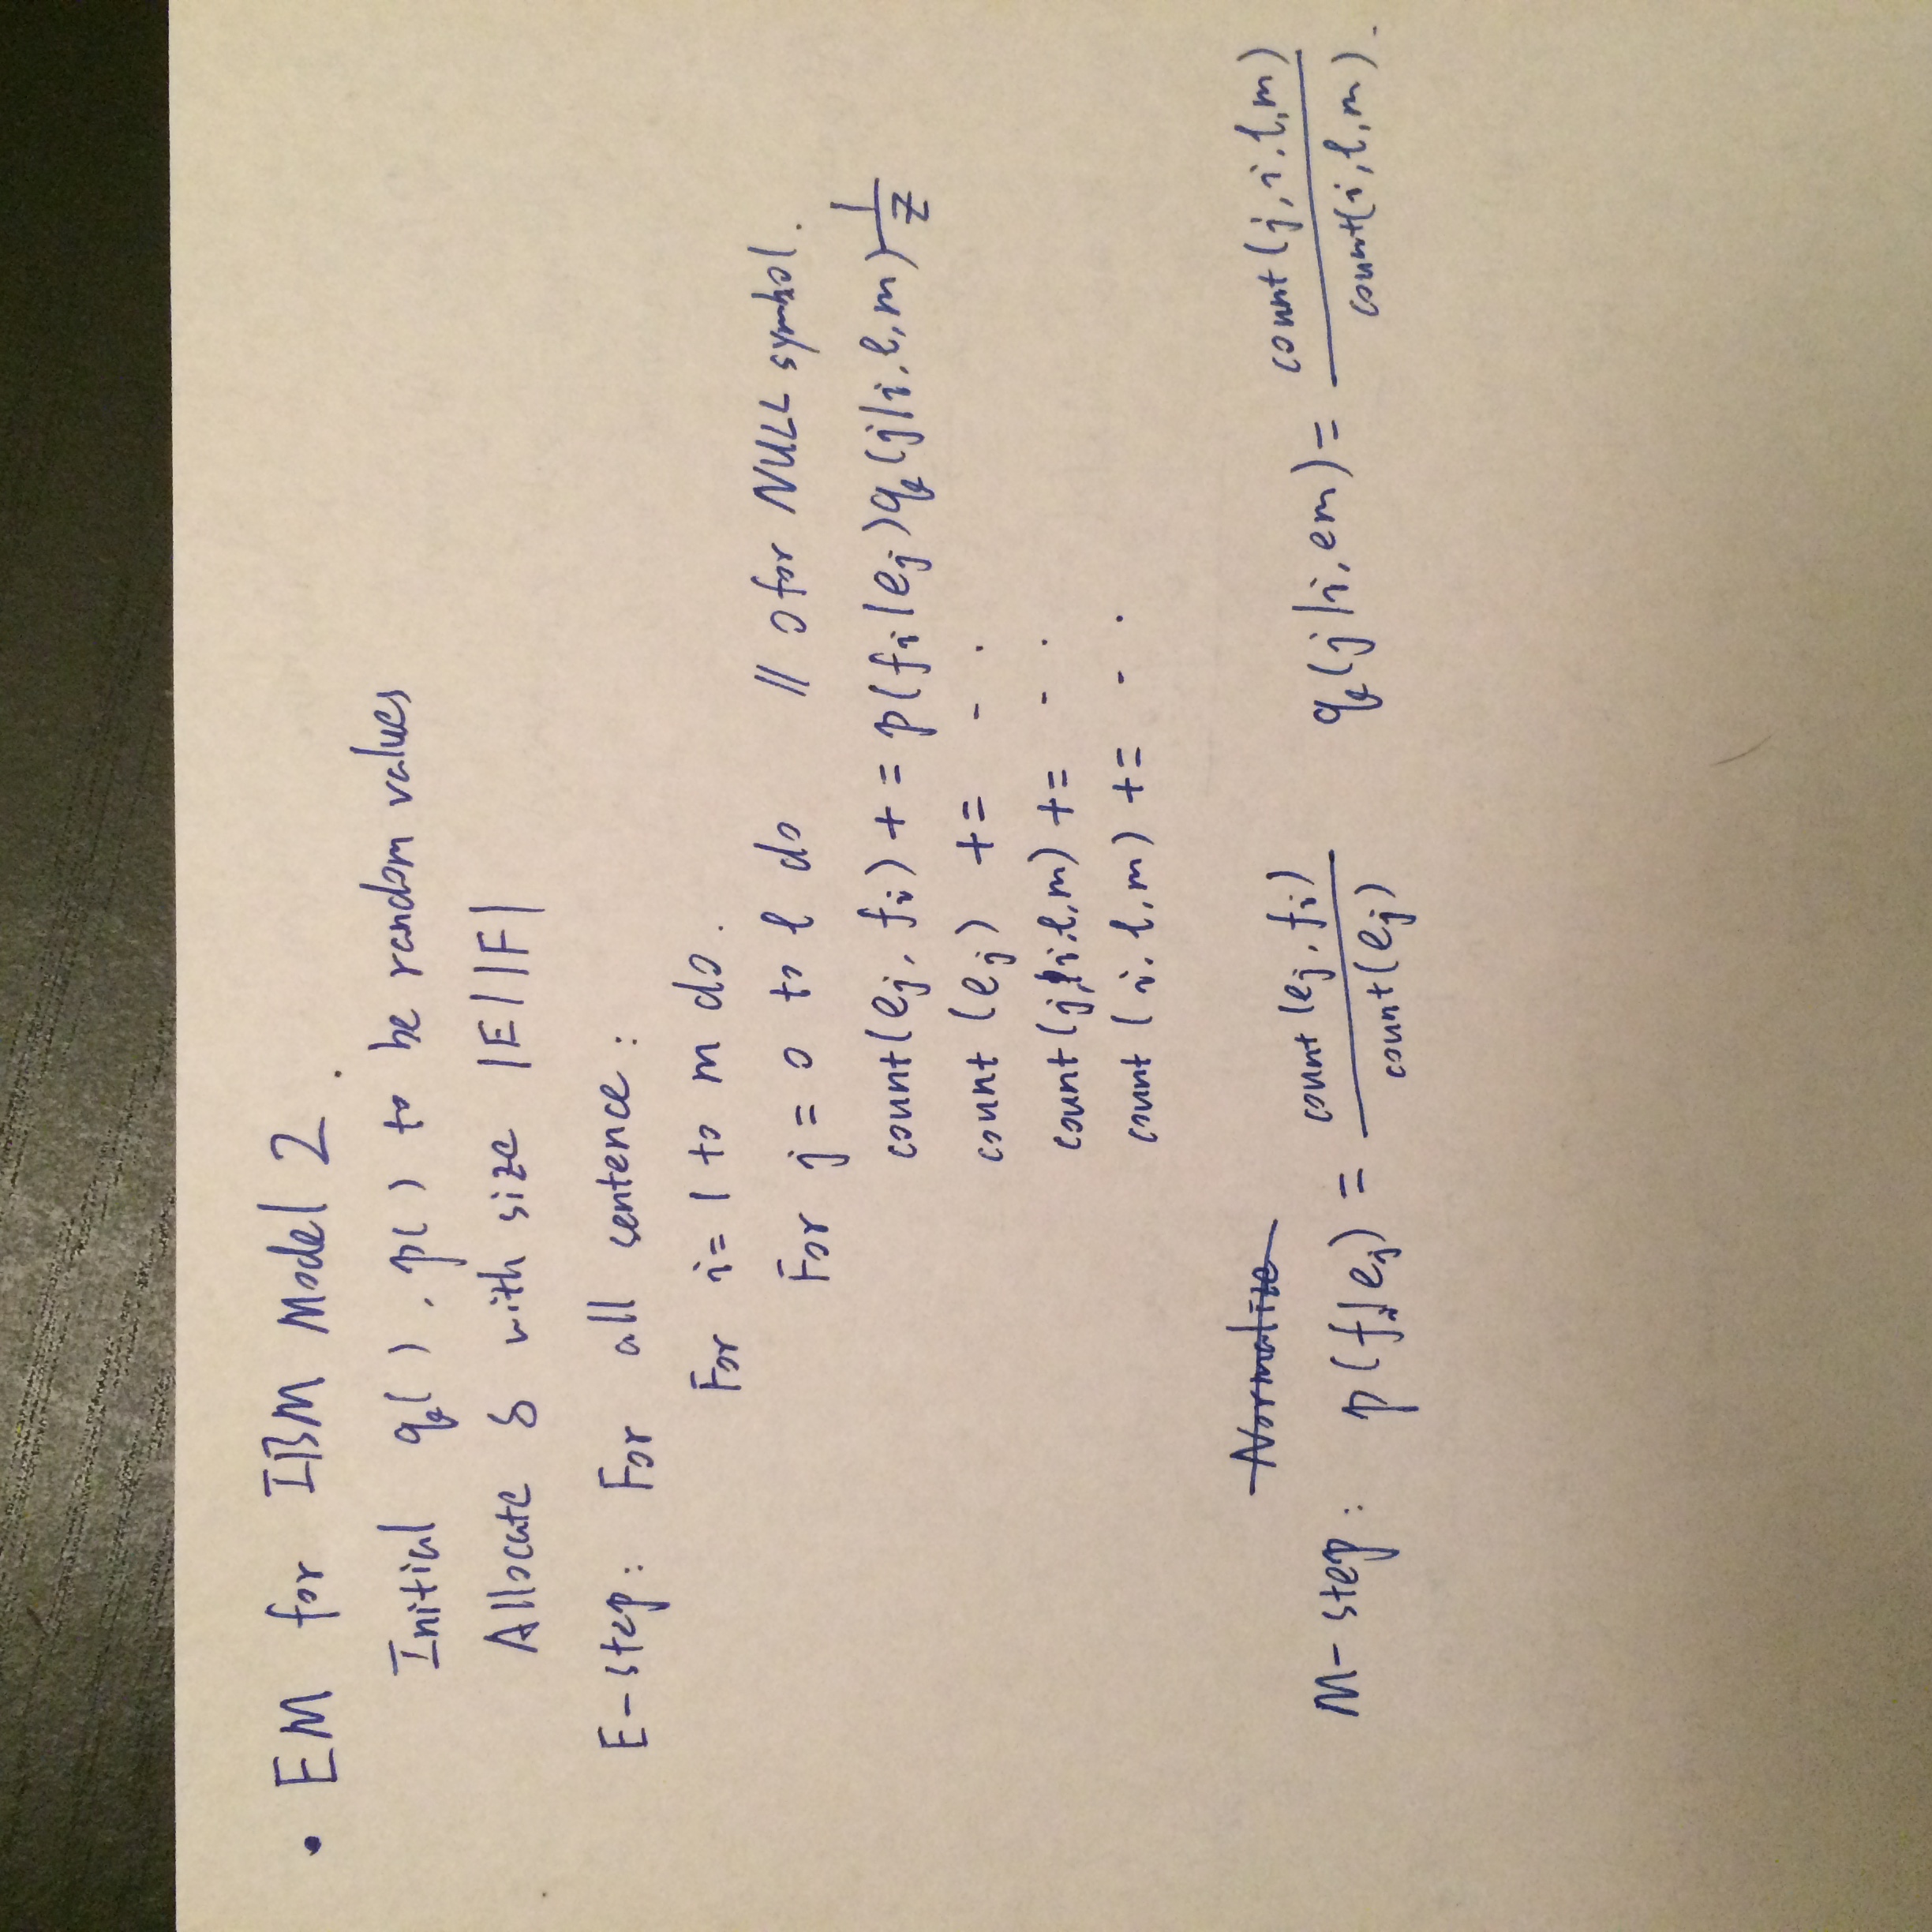 • EM for IBM Model 2.
Initial q( ), p( ) to be random values
Allocate δ with size |E||F|
E-step: For all sentence:
For i= 1 to m do.
For j = 0 to l do // 0 for NULL symbol.
count(e_j, f_i) += p(f_i|e_j)q(j|i,l,m) 1/Z
count (e_j) += - .
count(j,i,l,m) += - .
count (i,l,m) += - .
Normalize
M-step: p(f_i|e_j) = count(e_j, f_i) / count(e_j) q(j|i,em) = count(j,i,l,m) / count(i,l,m).